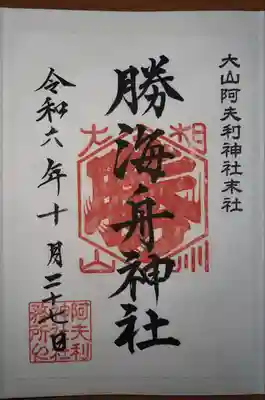 大山阿夫利神社末社
勝海舟神社
令和六年十月二十七日
相
大
州
山
阿夫利
神社社
務所印